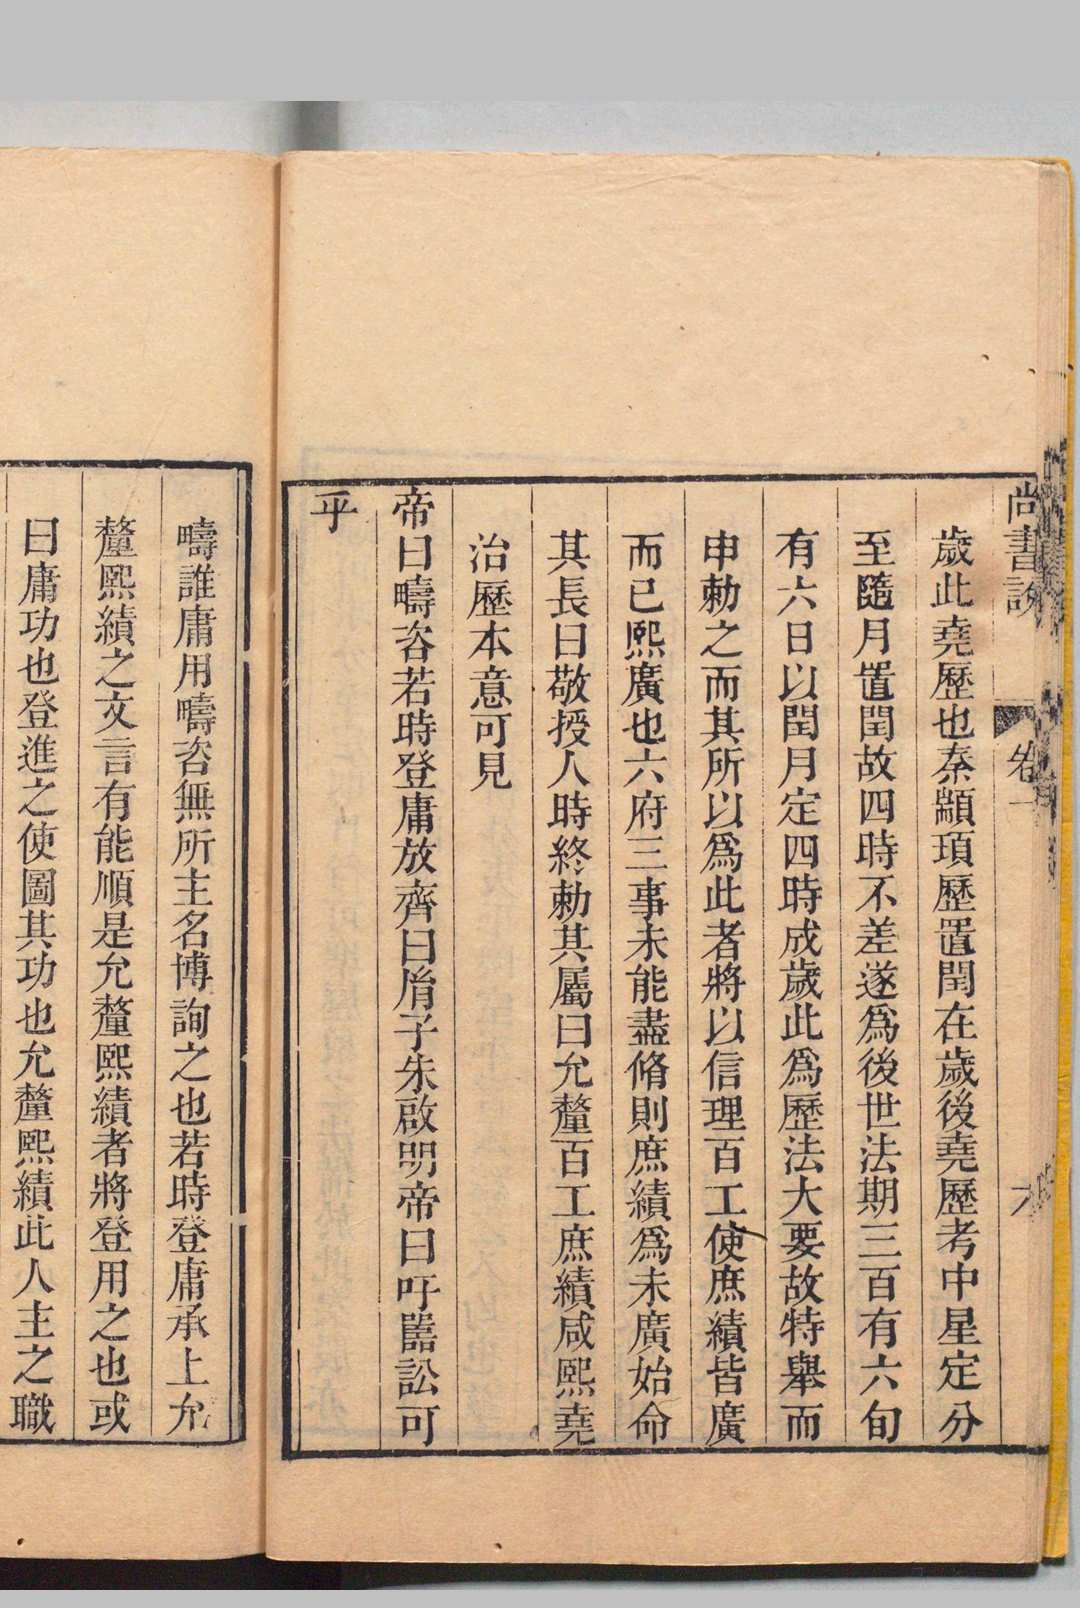 尚書說 卷一 六
歲此堯歷也秦顓頊歷置閏在歲後堯歷考中星定分
至隨月置閏故四時不差遂爲後世法期三百有六旬
有六日以閏月定四時成歲此爲歷法大要故特舉而
申勑之而其所以爲此者將以信理百工使庶績皆廣
而已熙廣也六府三事未能盡脩則庶績爲未廣始命
其長曰敬授人時終勑其屬曰允釐百工庶績咸熙堯
治歷本意可見
帝曰疇咨若時登庸放齊曰胤子朱啟明帝曰吁嚚訟可
乎
疇誰庸用疇咨無所主名博詢之也若時登庸承上允
釐熙績之文言有能順是允釐熙績者將登用之也或
曰庸功也登進之使圖其功也允釐熙績此人主之職